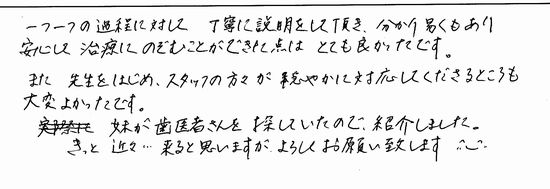 一つ一つの過程に対して 丁寧に説明をして頂き、分かり易くもあり
安心して 治療にのぞむことができた点は とても良かったです。
また 先生をはじめ、スタッフの方々が 穏やかに対応してくださるところも
大変よかったです。
妹が歯医者さんを探していたので、紹介しました。
きっと 近々… 来ると思いますが、よろしくお願い致します